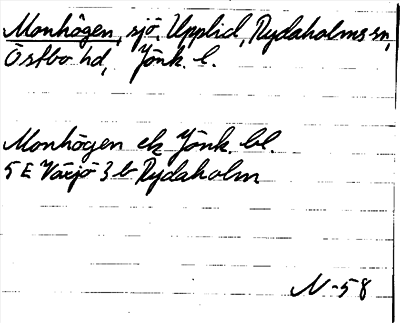 Monhögen, sjö, Upplid, Rydaholms sn,
Östbo hd, Jönk. l.
Monhögen ek Jönk. bl.
5 E Växjö 3 b Rydaholm
N-58